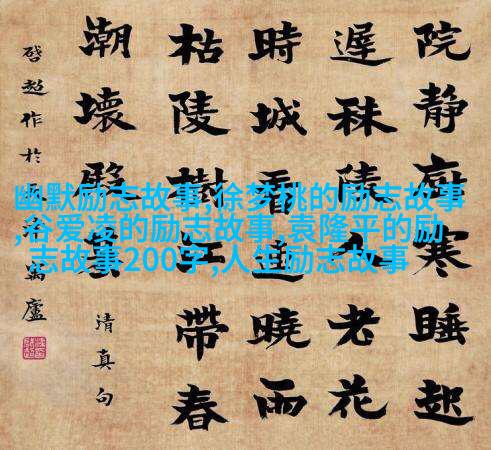 幽默励志故事,徐梦桃的励志故事
,谷爱凌的励志故事,袁隆平的励
志故事200字,人生励志故事
院靜寒睡起
遲秣陵老花
時城曉雨
枯陵樹江帶春
潮壞
清真句
啓超作於廬